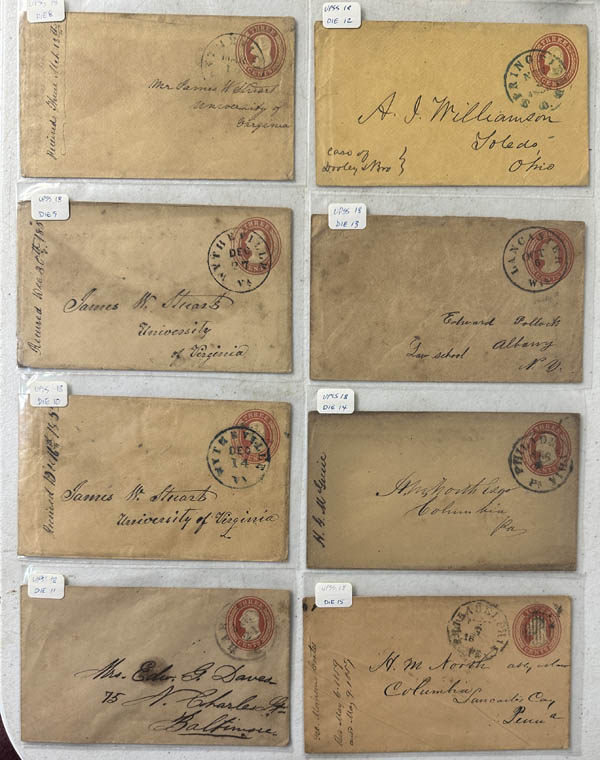 UPSS 18
DIE 8
THREE
CENTS
Mr James W Stuart
University of
Virginia
UPSS 18
DIE 9
THREE
WYTHEVILLE
DEC
27
VA
James W. Stuart
University
of Virginia
UPSS 18
DIE 10
THREE
WYTHEVILLE
DEC
14
VA
James W. Stuart
University of Virginia
UPSS 18
DIE 11
THREE
CENTS
Mrs. Edw. G. Daves
75 N. Charles St
Baltimore
UPSS 18
DIE 12
THREE
CENTS
SPRINGFIELD
O.
A. J. Williamson
Toledo,
Ohio
Case of
Dooley & Bro
UPSS 18
DIE 13
LANCASTER
WIS
Edward Pollock
Law school Albany
N.Y.
UPSS 18
DIE 14
PHILADELPHIA
Pa
H. G. McGuire
Columbia
Pa
UPSS 18
DIE 15
THREE
CENTS
PHILADELPHIA
H. M. North
Columbia
Lancaster Coy
Penna
Rec May 6. 1859
and May 9. 1859